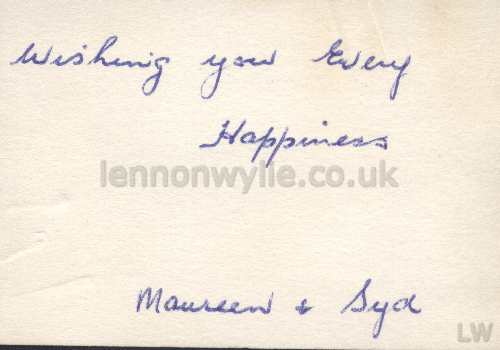 Wishing you Every
Happiness
lennonwylie.co.uk
Maureen & Syd
LW